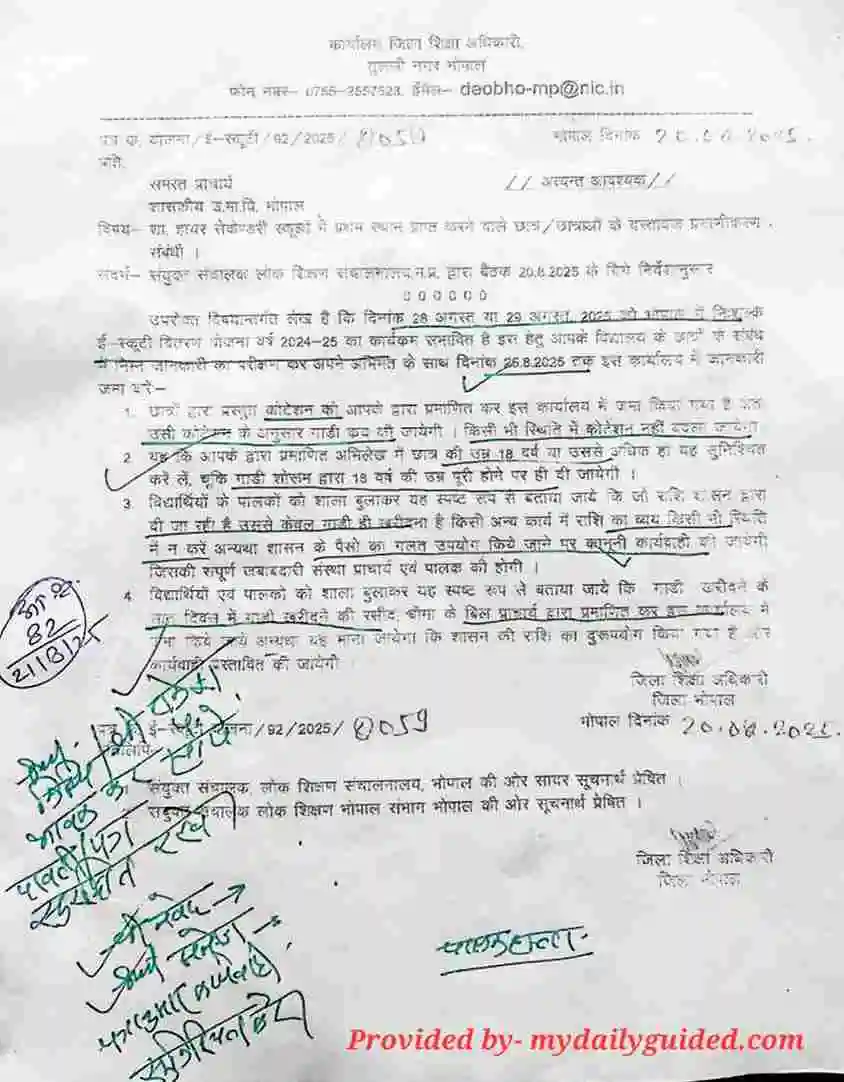 कार्यालय जिला शिक्षा अधिकारी,
तुलसी नगर भोपाल
फोन नम्बर– 0755-2557523, ईमेल– deobho-mp@nic.in
पत्र क्र. योजना/ई-स्कूटी/92/2025/8059 भोपाल दिनांक 20.08.2025.
प्रति,
समस्त प्राचार्य //अत्यन्त आवश्यक//
शासकीय उ.मा.वि. भोपाल
विषय– शा. हायर सेकेण्डरी स्कूलों में प्रथम स्थान प्राप्त करने वाले छात्र/छात्राओं के दस्तावेज प्रमाणीकरण
संबंधी ।
संदर्भ– संयुक्त संचालक लोक शिक्षण संचालनालय,म.प्र. द्वारा बैठक 20.8.2025 के दिये निर्देशानुसार
000000
उपरोक्त विषयान्तर्गत लेख है कि दिनांक 28 अगस्त या 29 अगस्त, 2025 को भोपाल में निःशुल्क
ई-स्कूटी वितरण योजना वर्ष 2024-25 का कार्यक्रम संभावित है इस हेतु आपके विद्यालय के छात्रों के संबंध
में निम्न जानकारी का परीक्षण कर अपने अभिमत के साथ दिनांक 25.8.2025 तक इस कार्यालय में जानकारी
जमा करे:–
1. छात्रों द्वारा प्रस्तुत कोटेशन को आपके द्वारा प्रमाणित कर इस कार्यालय में जमा किया गया है अतः
उसी कोटेशन के अनुसार गाडी क्रय की जायेगी । किसी भी स्थिति में कोटेशन नहीं बदला जायेगा
2. यह कि आपके द्वारा प्रमाणित अभिलेख में छात्र की उम्र 18 वर्ष या उससे अधिक हो यह सुनिश्चित
कर लें, चूकि गाडी शोरूम द्वारा 18 वर्ष की उम्र पूरी होने पर ही दी जायेगी ।
3. विद्यार्थियों के पालकों को शाला बुलाकर यह स्पष्ट रूप से बताया जाये कि जो राशि शासन द्वारा
दी जा रही है उससे केवल गाडी ही खरीदना है किसी अन्य कार्य में राशि का व्यय किसी भी स्थिति
में न करें अन्यथा शासन के पैसो का गलत उपयोग किये जाने पर कानूनी कार्यवाही की जायेगी
जिसकी संपूर्ण जबाबदारी संस्था प्राचार्य एवं पालक की होगी ।
4. विद्यार्थियों एवं पालकों को शाला बुलाकर यह स्पष्ट रूप से बताया जाये कि गाडी खरीदने के
दिवस में गाडी खरीदने की रसीद, बीमा के बिल प्राचार्य द्वारा प्रमाणित कर इस कार्यालय में
जमा किये जाये अन्यथा यह माना जायेगा कि शासन की राशि का दुरूपयोग किया गया है और
कार्यवाही प्रस्तावित की जायेगी ।
82
21/8/25
जिला शिक्षा अधिकारी
जिला भोपाल
ई-स्कूटी योजना/92/2025/8059 भोपाल दिनांक 20.08.2025.
प्रतिलिपि–
संयुक्त संचालक, लोक शिक्षण संचालनालय, भोपाल की ओर सादर सूचनार्थ प्रेषित ।
संयुक्त संचालक लोक शिक्षण भोपाल संभाग भोपाल की ओर सूचनार्थ प्रेषित ।
जिला शिक्षा अधिकारी
जिला भोपाल
Provided by- mydailyguided.com